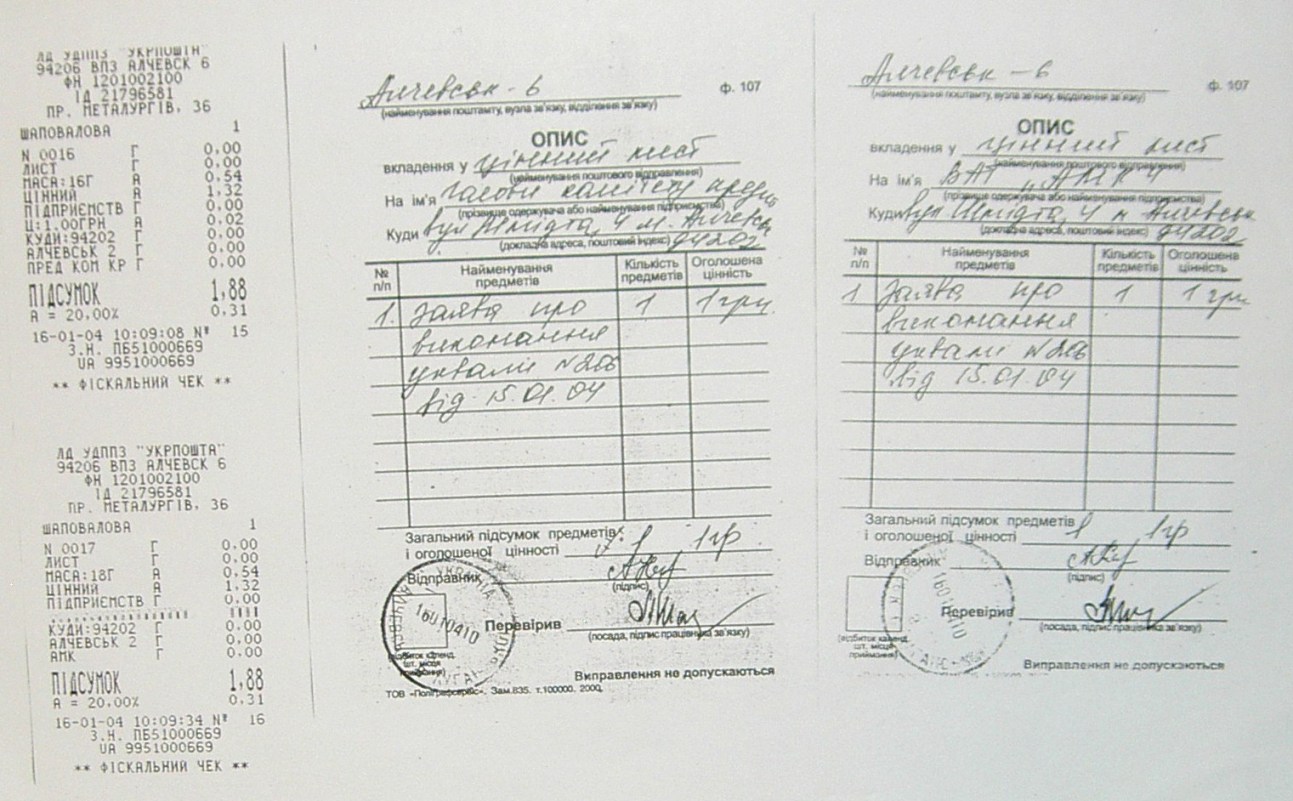 ЛД УДППЗ "УКРПОШТА"
94206 ВПЗ АЛЧЕВСК 6
ФН 1201002100
ІД 21796581
ПР. МЕТАЛУРГІВ, 36
ШАПОВАЛОВА 1
N 0016 Г 0.00
ЛИСТ Г 0.00
МАСА:16Г А 0.54
ЦІННИЙ А 1.32
ПІДПРИЄМСТВ Г 0.00
Ц:1.00ГРН А 0.02
КУДИ:94202 Г 0.00
АЛЧЕВСЬК 2 Г 0.00
ПРЕД КОМ КР Г 0.00
ПІДСУМОК 1,88
А = 20,00% 0.31
16-01-04 10:09:08 № 15
З.Н. ПБ51000669
UA 9951000669
** ФІСКАЛЬНИЙ ЧЕК **
ЛД УДППЗ "УКРПОШТА"
94206 ВПЗ АЛЧЕВСК 6
ФН 1201002100
ІД 21796581
ПР. МЕТАЛУРГІВ, 36
ШАПОВАЛОВА 1
N 0017 Г 0.00
ЛИСТ Г 0.00
МАСА:18Г А 0.54
ЦІННИЙ А 1.32
ПІДПРИЄМСТВ Г 0.00
КУДИ:94202 Г 0.00
АЛЧЕВСЬК 2 Г 0.00
АМК Г 0.00
ПІДСУМОК 1,88
А = 20,00% 0.31
16-01-04 10:09:34 № 16
З.Н. ПБ51000669
UA 9951000669
** ФІСКАЛЬНИЙ ЧЕК **
Алчевськ - 6 ф. 107
(найменування поштамту, вузла зв'язку, відділення зв'язку)
ОПИС
вкладення у цінний лист
(найменування поштового відправлення)
На ім'я комітету
(прізвище одержувача або найменування підприємства)
Куди вул Шмідта, 4 м. Алчевськ
(докладна адреса, поштовий індекс) 94202
№ п/п Найменування предметів Кількість предметів Оголошена цінність
1. Заява про 1 1 грн.
виконання
ухвали №266
від 15.01.04
Загальний підсумок предметів
і оголошеної цінності 1 1 гр
Відправник
(підпис)
16010410
Перевірив
(посада, підпис працівника зв'язку)
(відбиток календ.
шт. місця
приймання)
Виправлення не допускаються
ТОВ «Поліграфсервіс». Зам.835. т.100000. 2000.
Алчевськ - 6 ф. 107
(найменування поштамту, вузла зв'язку, відділення зв'язку)
ОПИС
вкладення у цінний лист
(найменування поштового відправлення)
На ім'я ВАТ „АМК"
(прізвище одержувача або найменування підприємства)
Куди вул Шмідта, 4 м Алчевськ
(докладна адреса, поштовий індекс) 94202
№ п/п Найменування предметів Кількість предметів Оголошена цінність
1 Заява про 1 1 грн
виконання
ухвали №266
від 15.01.04
Загальний підсумок предметів
і оголошеної цінності 1 1гр
Відправник
(підпис)
16010410
Перевірив
(посада, підпис працівника зв'язку)
(відбиток календ.
шт. місця
приймання)
Виправлення не допускаються